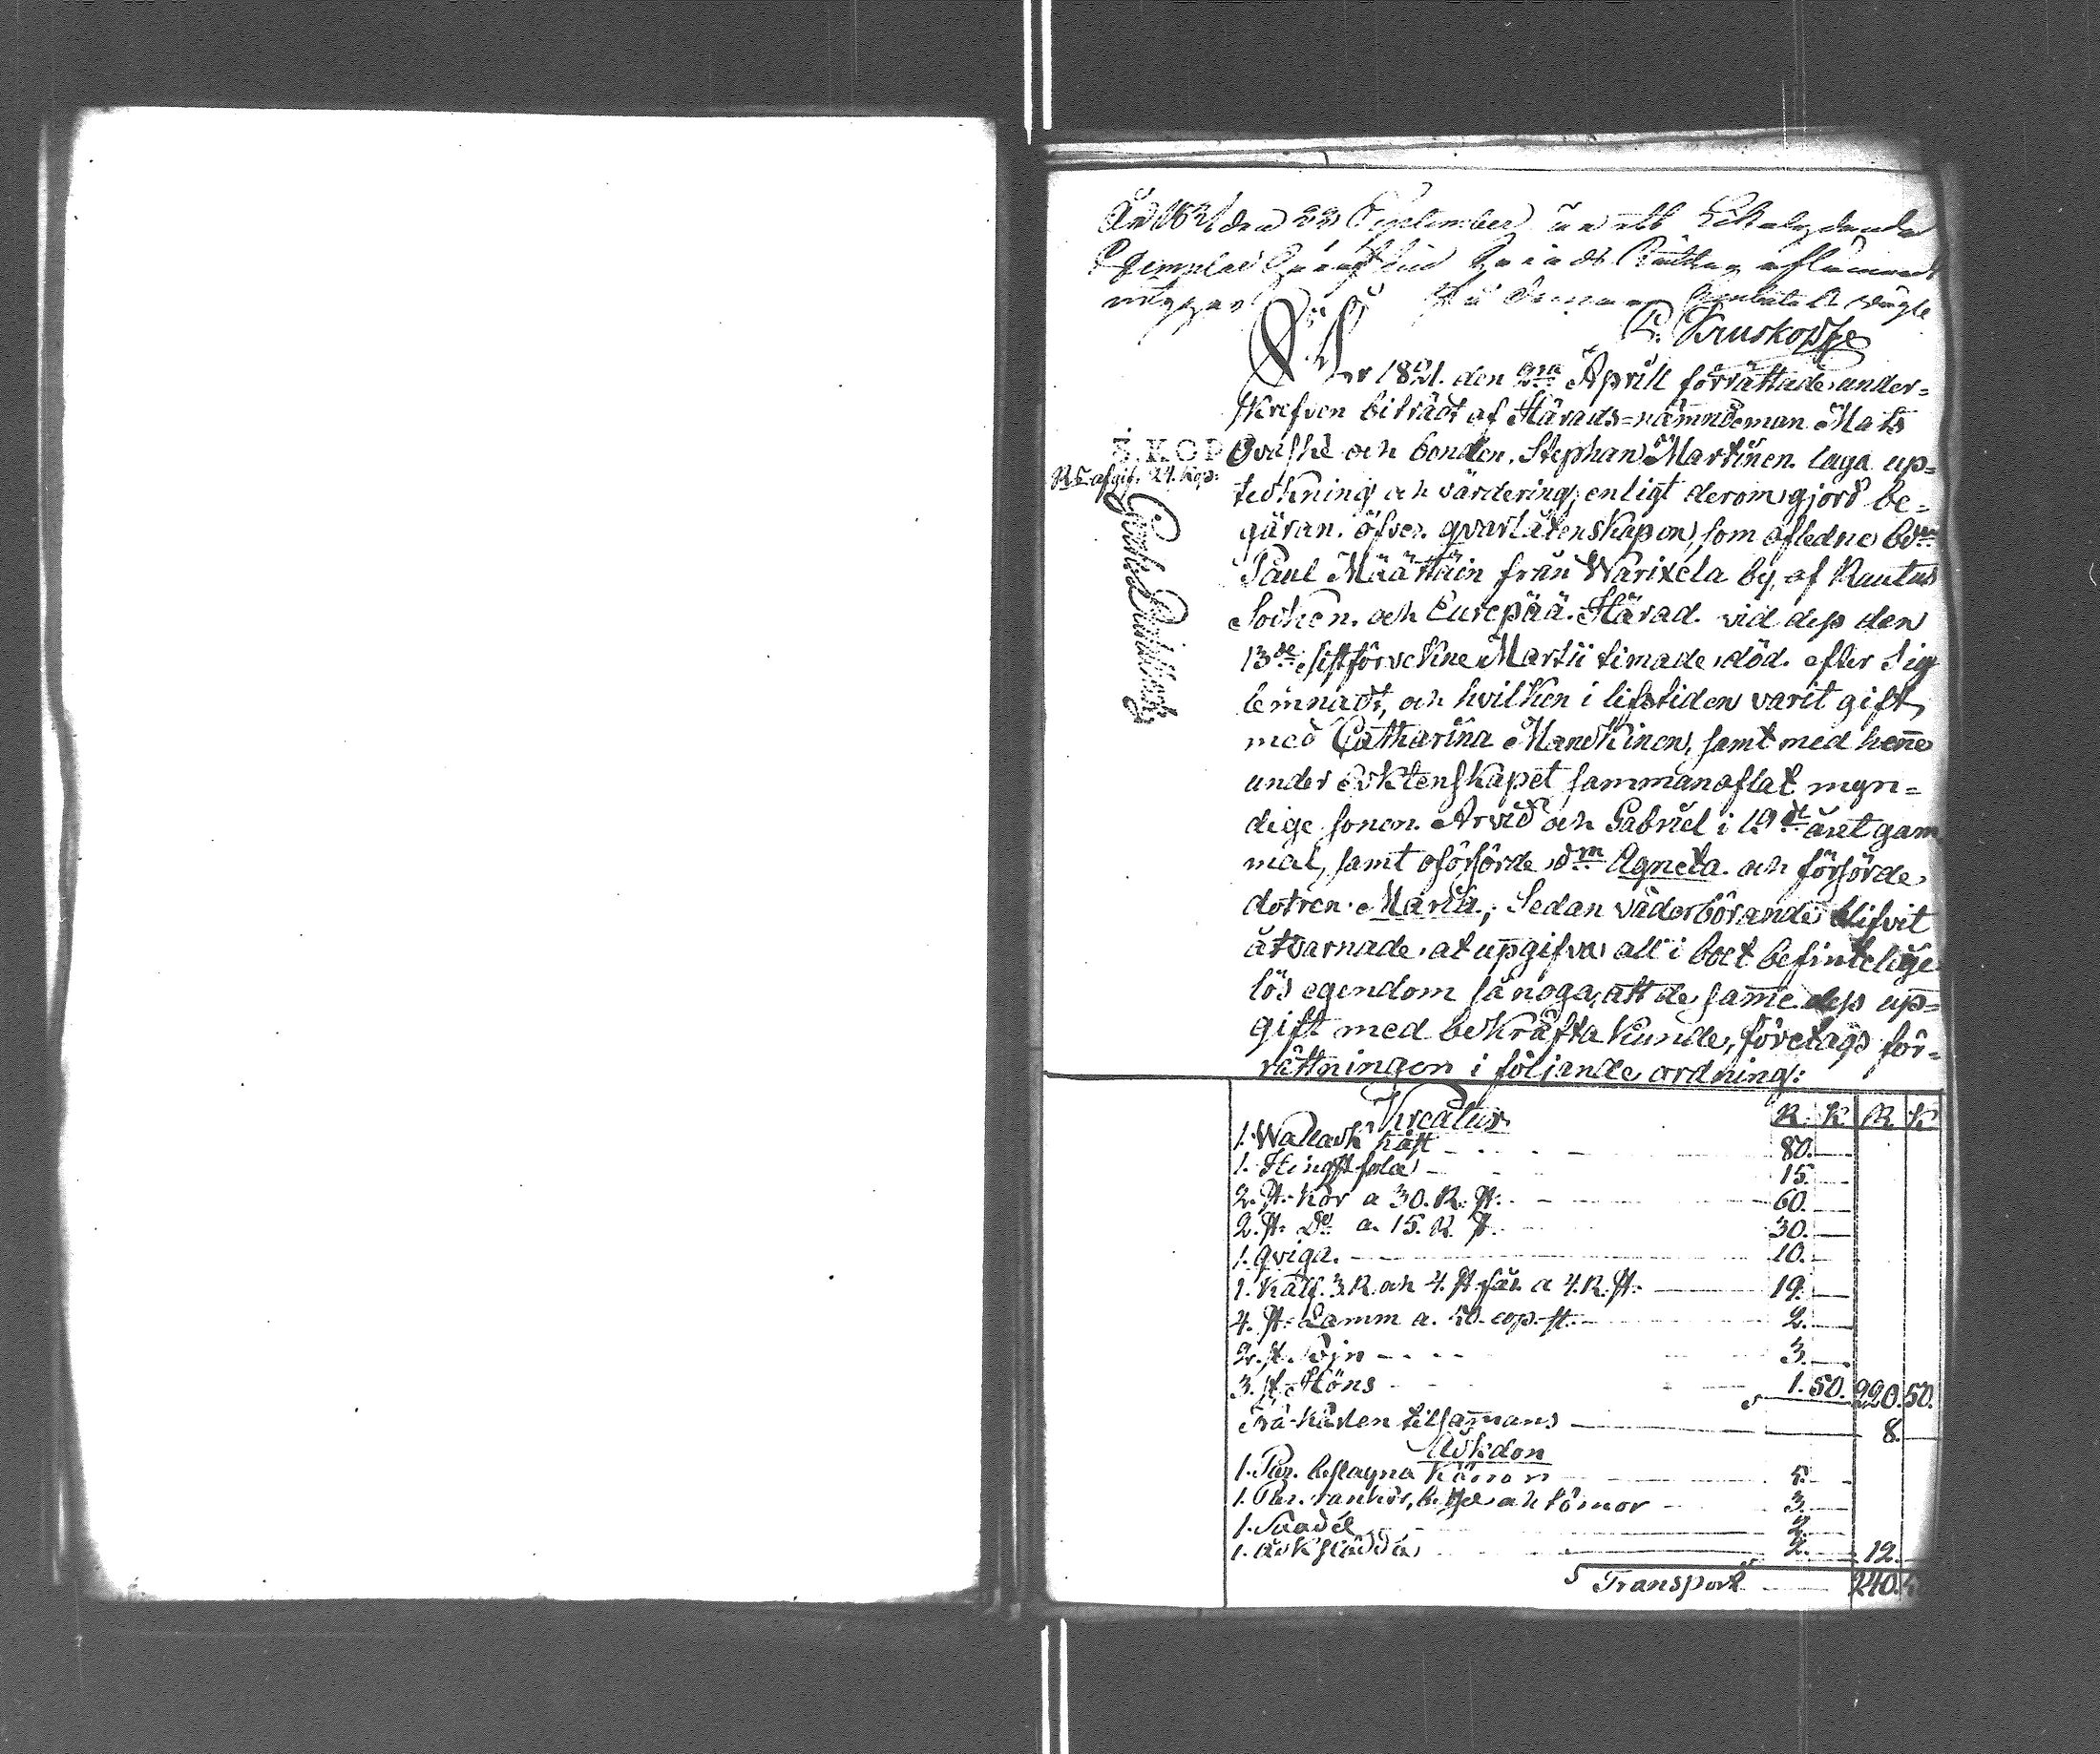 År 1821 den 22 September är ett Lika lydande
Exemplar häraf
L. Kruskopf
År 1821. den 2ra Aprill förrättade under=
skrefven biträdt af Härads=nämndeman Mats
och bonden Stephan Martinen laga up=
tekning och värdering, enligt derom gjord be=
gäran öfver qvarlåtenskapen, som afledne bdn
Paul Määttäin från Warixela by, af Rautus
Socken och Eurepää Härad vid dess den
13de sistförvekne Martii timade död efter sig
lemnadt, och hvilken i lifstiden varit gift
med Catharina Manskinen, samt med henne
under ecktenskapet sammanaflat myn=
dige sonen Arvid och Gabriel i 19de året gam
mal, samt oförsörde dn Agneta och försörde
dotren Maria; Sedan väderbörande blifvit
åtvarnade at upgifva all i boet befintelige
lös egendom så noga, att de same dess up=
gift med bekräfta kunde, företags för=
rättningen i följande ordning:
S. KOP
afgif. 21. Kop:
Kreatur R. K. R. K
1. Wallack häst 80.
1. Hingst fola 15.
2. st. Kor a 30. R. st: 60.
2. st: Do a. 15. R. st. 30.
1. qviga. 10.
1. Kalf. 3. R. och 4. st får a 4. R. st: 19.
4. st: Lamm a. 50. cop. st. 2.
2. st. Svin 3.
3. st. Höns 1. 50. 220. 50.
Trä-kärlen tilsamans 8.
Åkdon
1. Par. beslagna 5.
1. och tömmor 3.
1. Saadel 2.
1. åkslädda 2. 12.
S Transport 240.